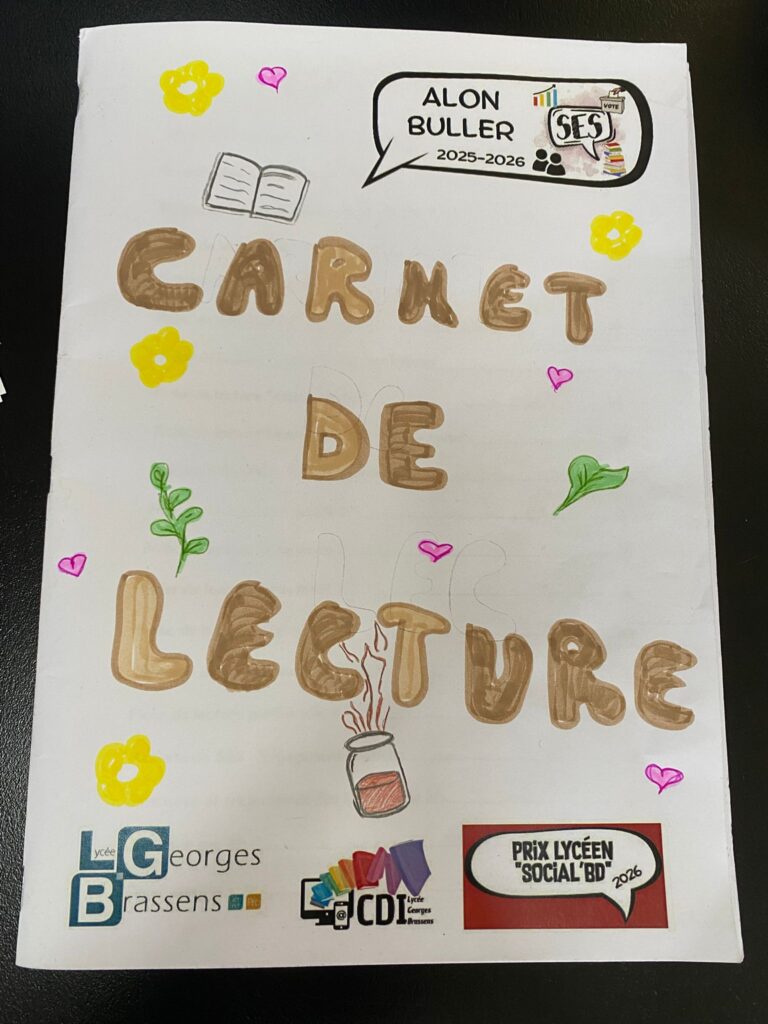 ALON
BULLER
2025-2026
VOTE
SES
CARNET
DE
LECTURE
Lycée Georges
Brassens
@ CDI Lycée
Georges
Brassens
PRiX LYCÉEN
"SOCiAL'BD"
2026